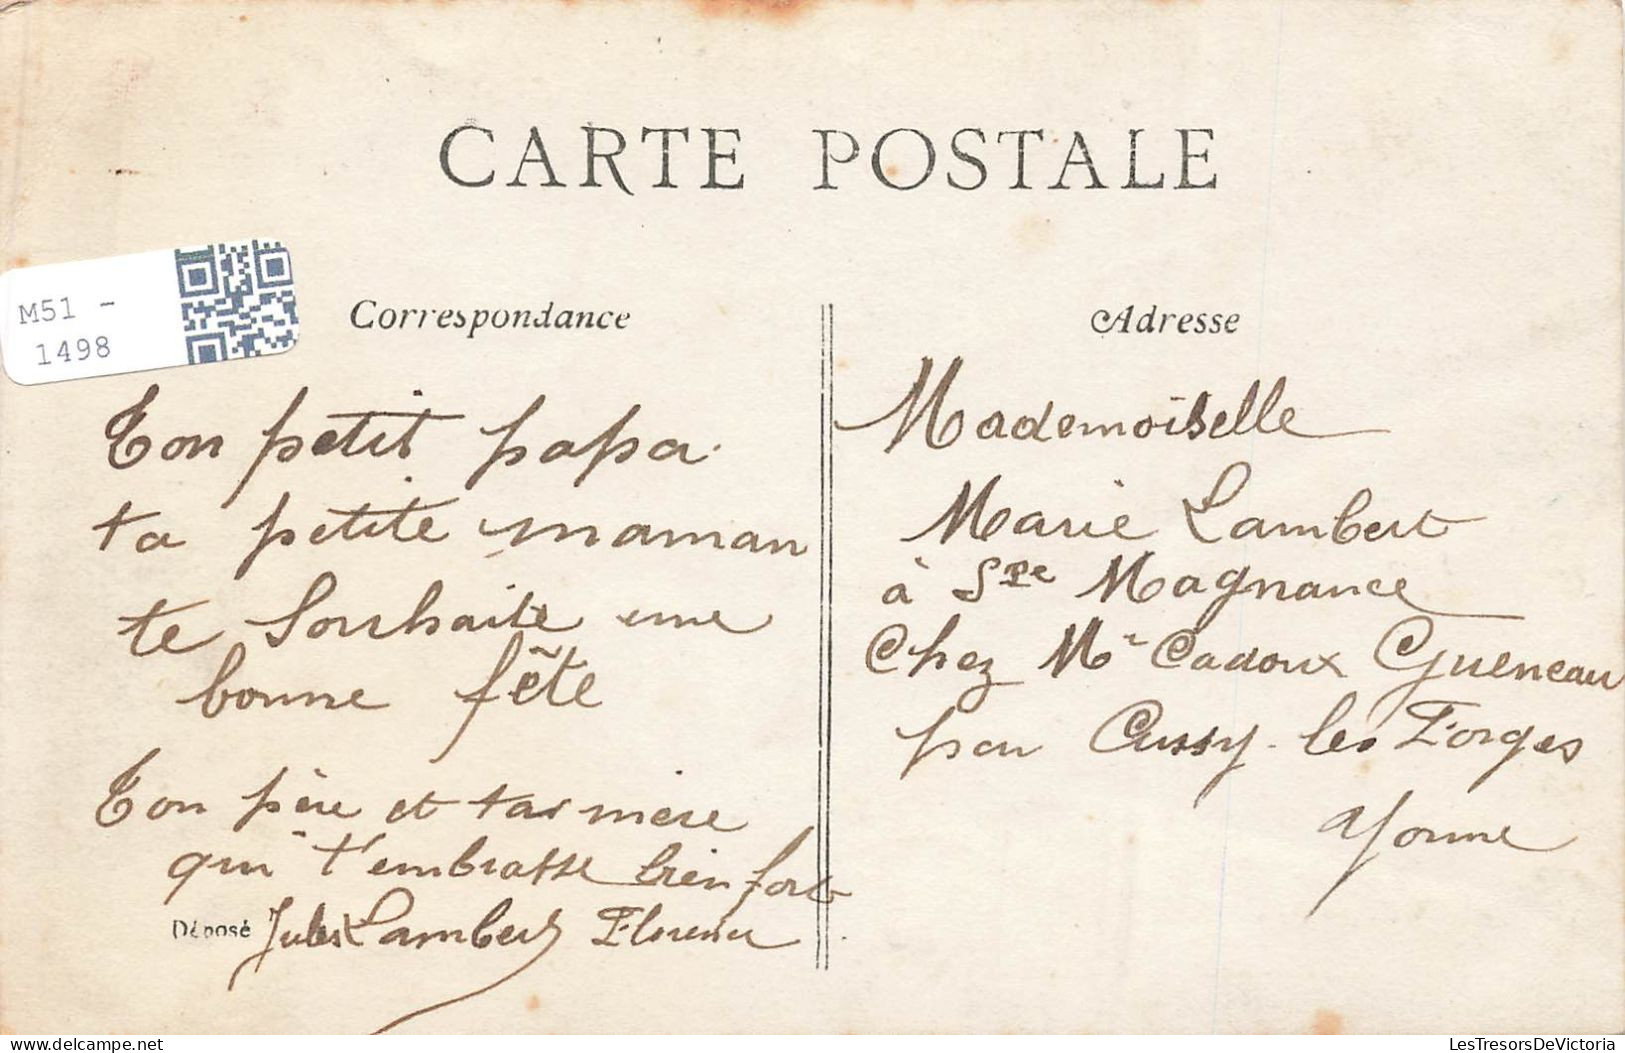 CARTE POSTALE
M51 -
1498
Correspondance
Ton petit papa
ta petite maman
te souhaite une
bonne fête
Ton père et ta mère
qui t'embrasse bien fort
Déposé Jules Lambert
Adresse
Mademoiselle
Marie Lambert
à Ste Magnance
Chez Mr Cadoux Gueneau
par Cussy les Forges
Yonne
LesTresorsDeVictoria